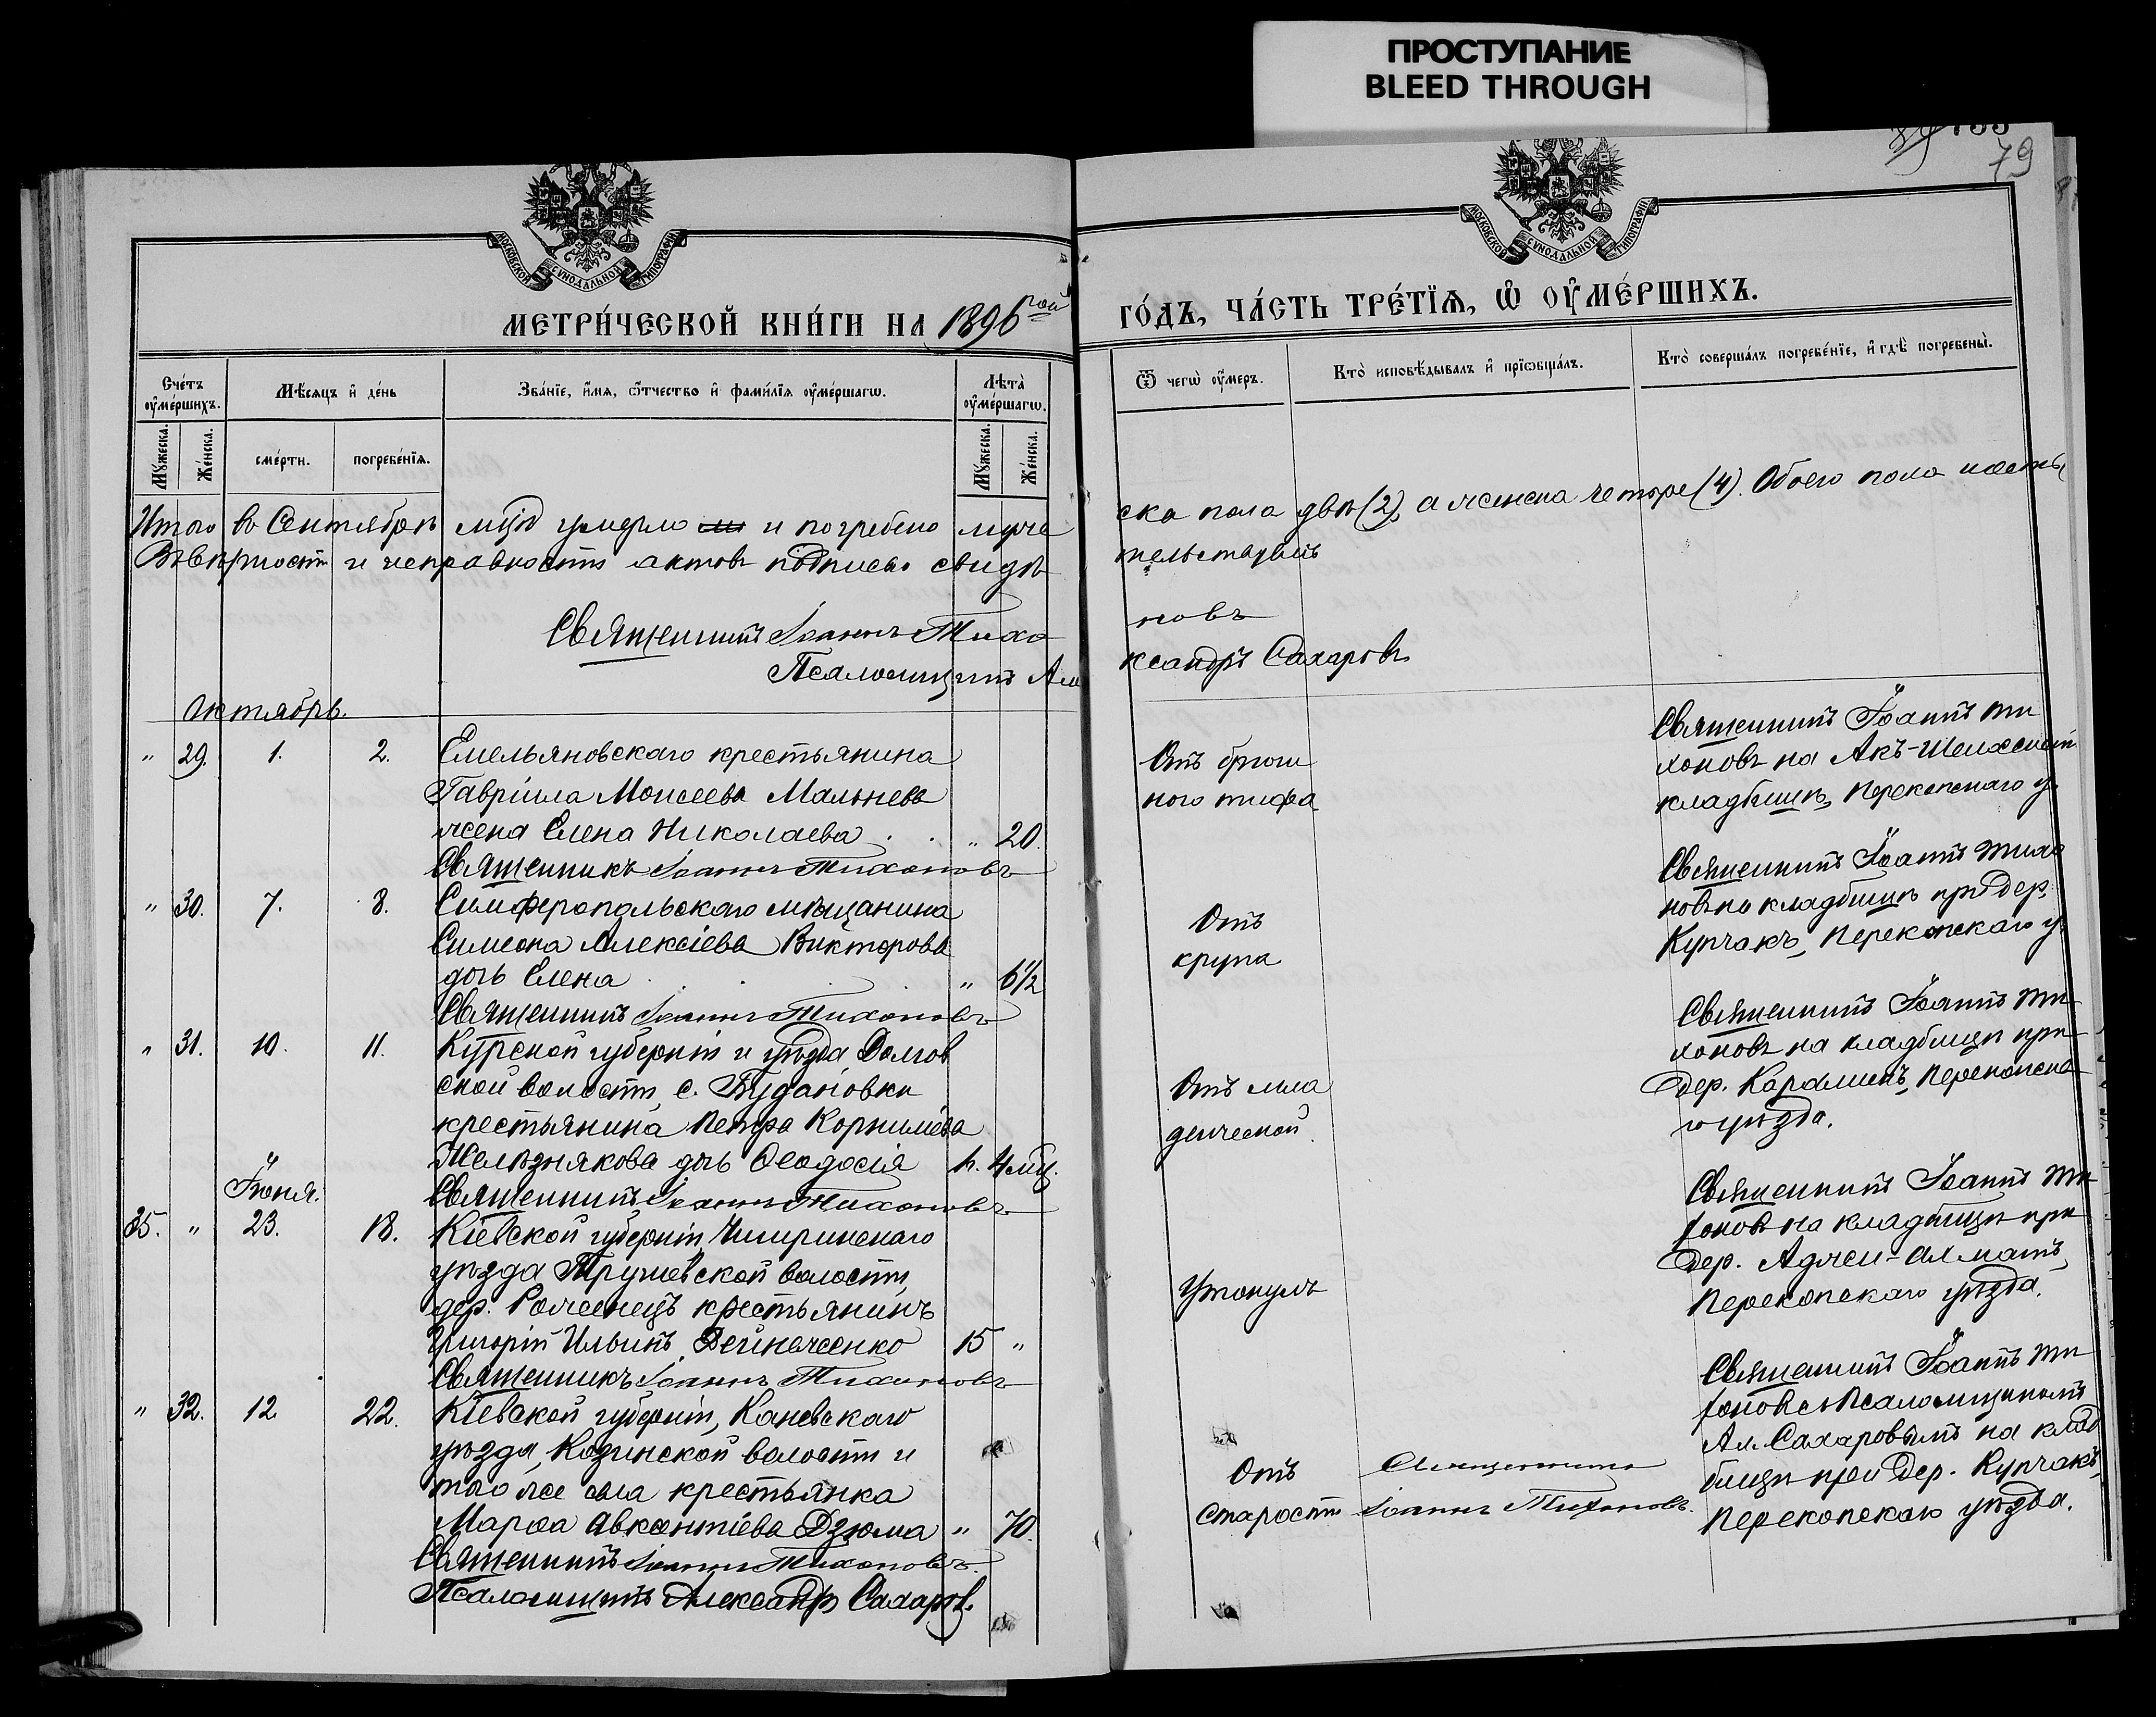 ПРОСТУПАНИЕ
BLEED THROUGH
79
МОСКОВСКОЙ СѴНОДАЛЬНОЙ ТИПОГРАФІИ
МОСКОВСКОЙ СѴНОДАЛЬНОЙ ТИПОГРАФІИ
МЕТРИ́ЧЕСКОЙ КНИ́ГИ НА 1896 гой
ГО́ДЪ, ЧА́СТЬ ТРЕ́ТЇѦ, Ѡ҆ ОУ҆МЕ́РШИХЪ.
Сче́тъ оу҆ме́ршихъ.
Мѣ́сяцъ и҆ де́нь
Зва́нїе, и҆́мя, ѻ҆́тчество и҆ фами́лїя оу҆ме́ршагѡ.
Лѣ́та оу҆ме́ршагѡ.
Му́жеска.
Же́нска.
сме́рти.
погребе́нїя.
Му́жеска.
Же́нска.
Ѿ чегѡ̀ оу҆́меръ.
Кто̀ исповѣ́дывалъ и҆ прїѡбща́лъ.
Кто̀ соверша́лъ погребе́нїе, и҆ гдѣ̀ погребены̀.
Итого въ Сентябрѣ мцѣ умерло и погребено муже
ска пола двѣ (2), а женска четыре (4). Обоего пола шесть,
Въ вѣрности и исправности актовъ подписью свидѣ
тельствуемъ
Священникъ Іоаннъ Тихо
новъ
Псаломщикъ Але
ксандръ Сахаровъ
Октябрь.
" 29. 1. 2. Емельяновскаго крестьянина
Гавріила Моисеева Мальнева
жена Елена Николаева " 20.
Священникъ Іоаннъ Тихоновъ
Отъ брюш
ного тифа
Священникъ Іоаннъ Ти
хоновъ на Акъ-
кладбищѣ, Перекопскаго у.
" 30. 7. 8. Симферопольскаго мѣщанина
Симеона Алексіева Викторова
дочь Елена " 6½
Священникъ Іоаннъ Тихоновъ
Отъ
крупа
Священникъ Іоаннъ Тихо
новъ на кладбищѣ при дер.
Купчакъ, Перекопскаго у.
" 31. 10. 11. Курской губерніи и уѣзда, Долгов
ской волости, с. Будановки
крестьянина Петра Корнилiева
Желѣзнякова дочь Ѳеодосія " 4 мц.
Священникъ Іоаннъ Тихоновъ
Отъ мла
денческой
Священникъ Іоаннъ Ти
хоновъ на кладбищѣ при
дер. Карамикъ, Перекопска
го уѣзда.
Іюня.
35. " 23. 18. Кіевской губерніи, Чигиринскаго
уѣзда Трушевской волости,
дер. Роженецъ крестьянинъ
Григорій Ильинъ Дейнеженко 15 "
Священникъ Іоаннъ Тихоновъ
Утонулъ
Священникъ Іоаннъ Ти
хоновъ на кладбищѣ при
дер. Аджи-Ахматъ,
Перекопскаго уѣзда.
" 32. 12. 22. Кіевской губерніи, Каневскаго
уѣзда, Козинской волости и
того же села крестьянка
Марѳа Авксентіева Дзюма " 70.
Священникъ Іоаннъ Тихоновъ.
Псаломщикъ Александръ Сахаровъ.
Отъ
старости
Священникъ
Іоаннъ Тихоновъ.
Священникъ Іоаннъ Ти
хоновъ съ Псаломщикомъ
Ал. Сахаровымъ на клад
бищѣ при дер. Купчакъ,
Перекопскаго уѣзда.